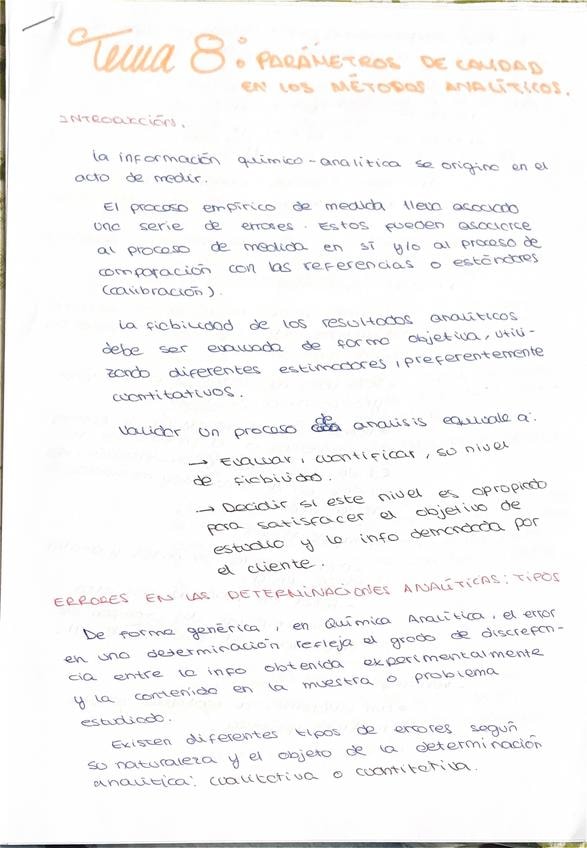 Tema 8: PARÁMETROS DE CALIDAD
EN LOS MÉTODOS ANALÍTICOS.
INTRODUCCIÓN.
La información químico-analítica se origina en el
acto de medir.
El proceso empírico de medida lleva asociado
una serie de errores. Estos pueden asociarse
al proceso de medida en sí y/o al proceso de
comparación con las referencias o estándares
(calibración).
La fiabilidad de los resultados analíticos
debe ser evaluada de forma objetiva, utili-
zando diferentes estimadores, preferentemente
cuantitativos.
Validar un proceso de analisis equivale a:
→ Evaluar, cuantificar, su nivel
de fiabilidad.
→ Decidir si este nivel es apropiado
para satisfacer el objetivo de
estudio y la info demandada por
el cliente.
ERRORES EN LAS DETERMINACIONES ANALÍTICAS: TIPOS
De forma genérica, en Química Analítica, el error
en una determinación refleja el grado de discrepan-
cia entre la info obtenida experimentalmente
y la contenida en la muestra o problema
estudiado.
Existen diferentes tipos de errores según
su naturaleza y el objeto de la determinación
analítica: cualitativa o cuantitativa.